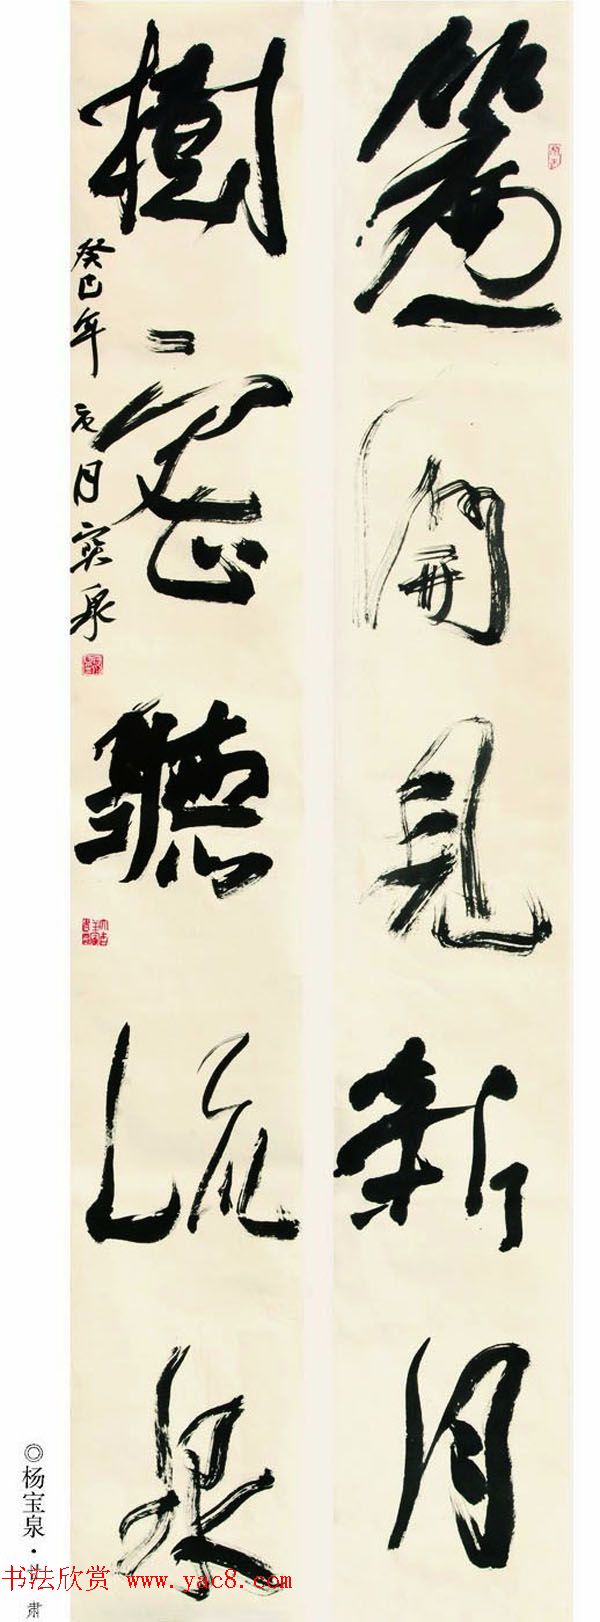 簾開見新月
樹密聽流泉
癸巳年元月寶泉
◎杨宝泉·甘肃
书法欣赏 www.yac8.com